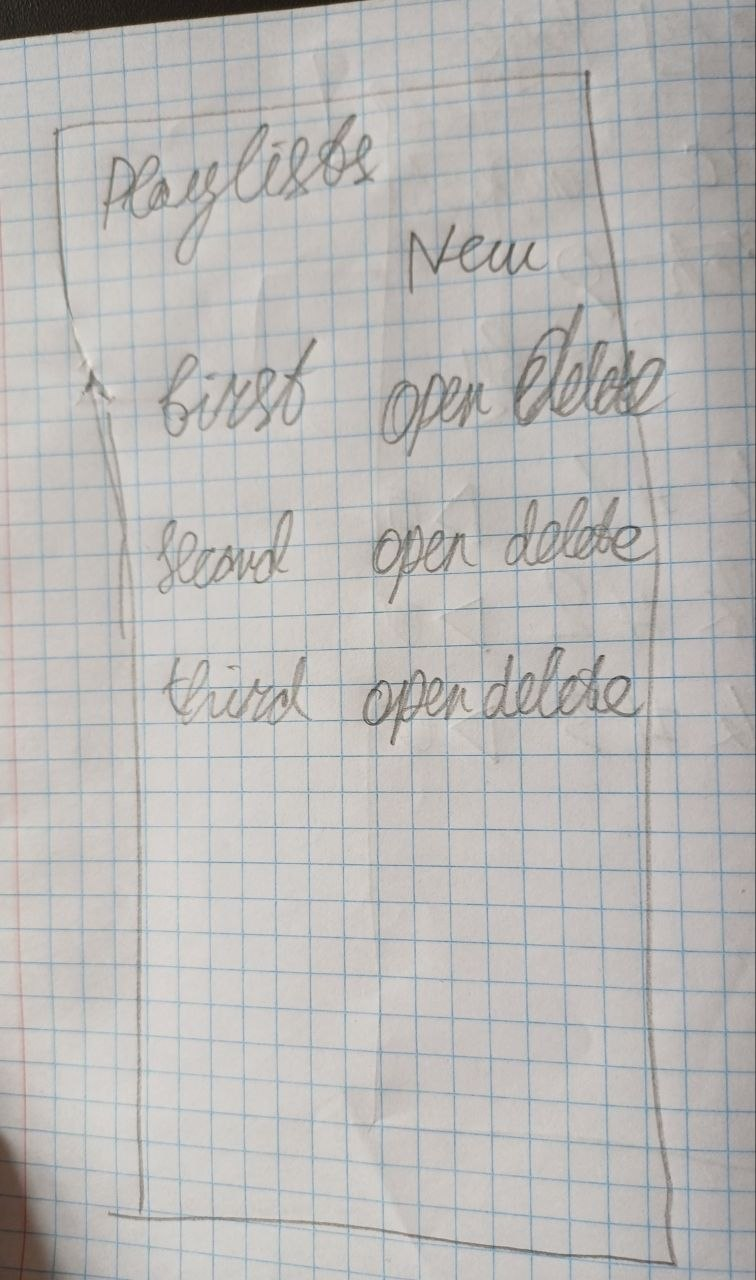 Playlists
New
first open delete
second open delete
third open delete